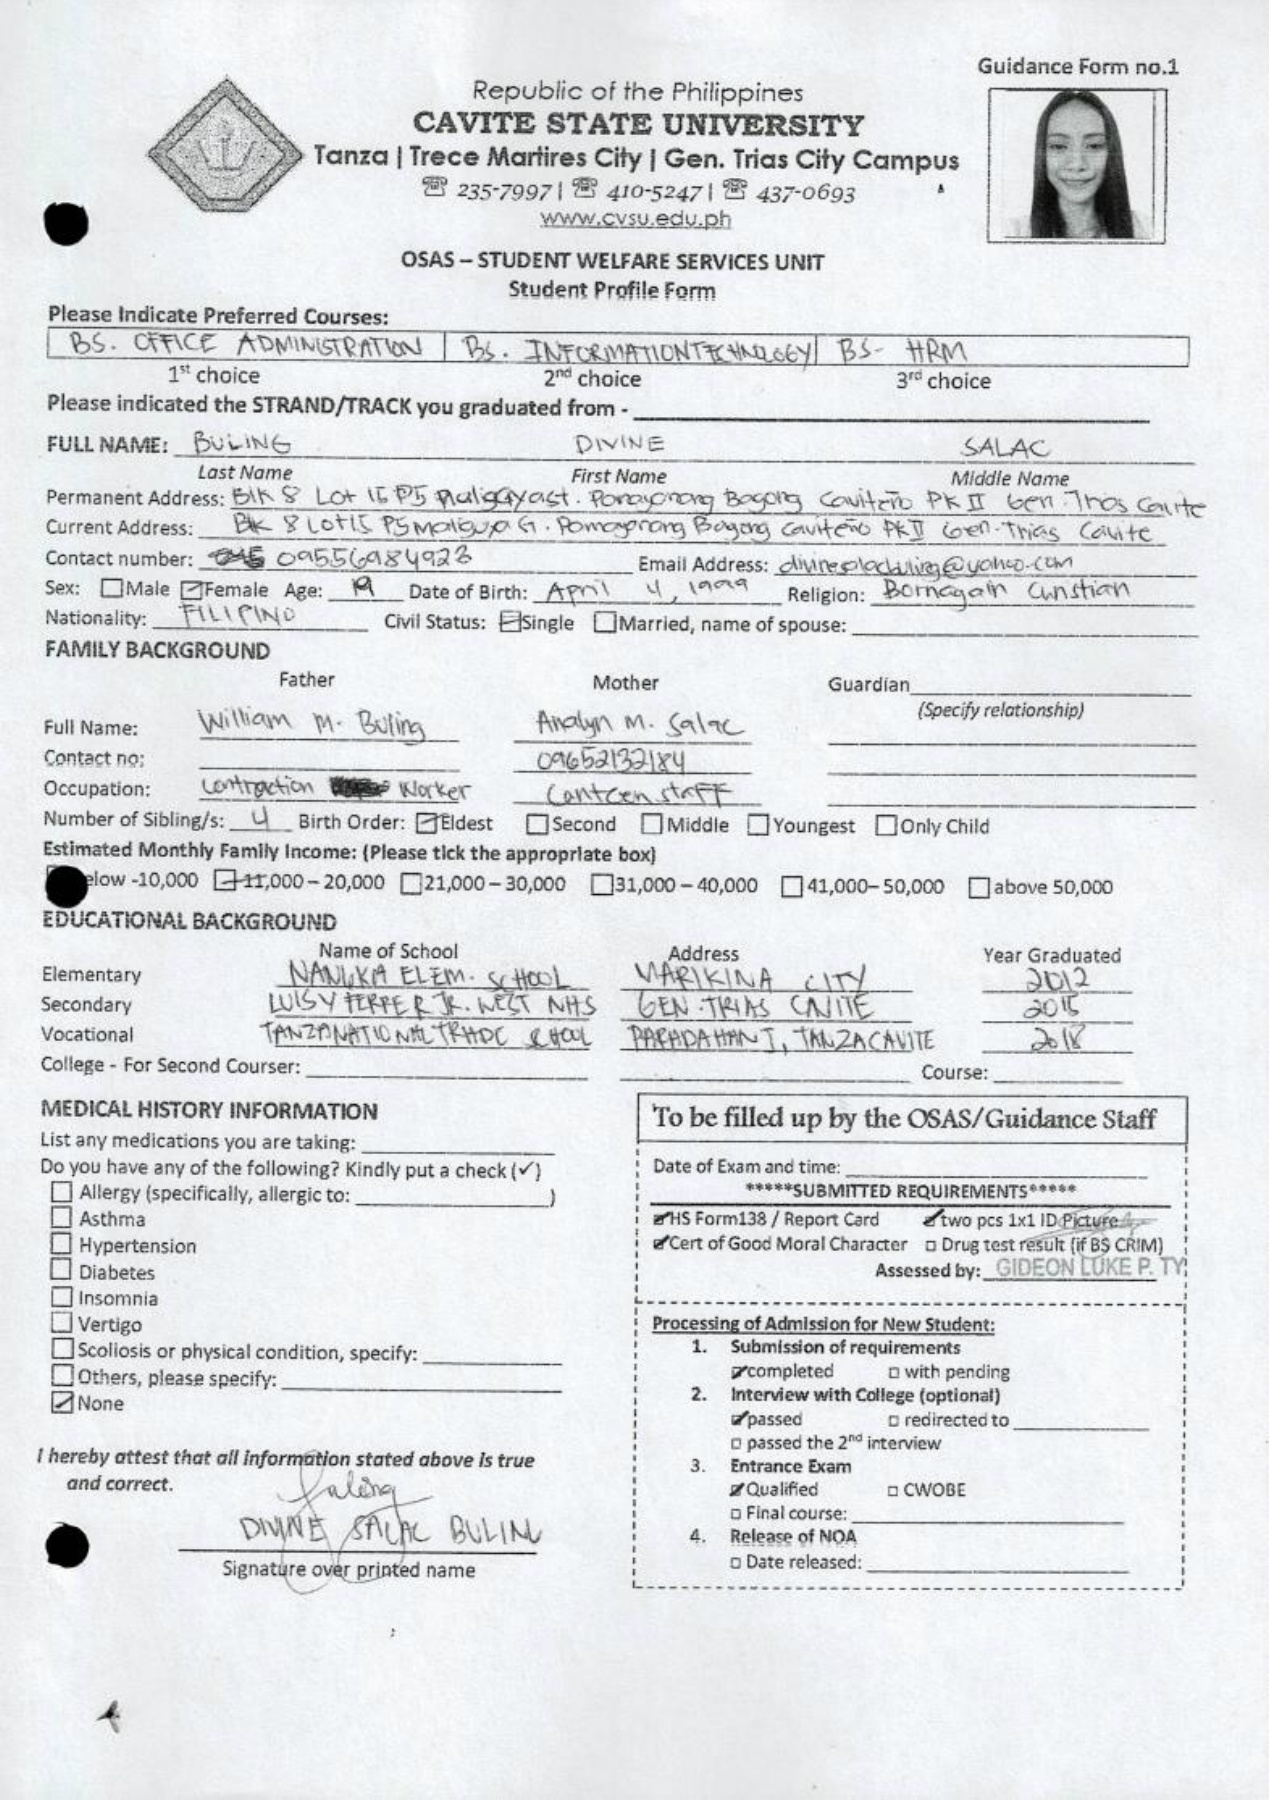 Guidance Form no.1
Republic of the Philippines
CAVITE STATE UNIVERSITY
Tanza | Trece Martires City | Gen. Trias City Campus
☏ 235-7997 | ☏ 410-5247 | ☏ 437-0693
www.cvsu.edu.ph
OSAS – STUDENT WELFARE SERVICES UNIT
Student Profile Form
Please Indicate Preferred Courses:
BS. OFFICE ADMINISTRATION BS. INFORMATION TECHNOLOGY BS- HRM
1st choice 2nd choice 3rd choice
Please indicated the STRAND/TRACK you graduated from -
FULL NAME: BULING DIVINE SALAC
Last Name First Name Middle Name
Permanent Address: Blk 8 Lot 15 P5 Bagong Caviteño PK II Gen. Trias Cavite
Current Address: Blk 8 Lot 15 P5 Bagong Caviteño PK II Gen. Trias Cavite
Contact number: 09556984923 Email Address: @yahoo.com
Sex: Male Female Age: 19 Date of Birth: April 4, 1999 Religion: Bornagain Christian
Nationality: FILIPINO Civil Status: Single Married, name of spouse:
FAMILY BACKGROUND
Father Mother Guardian
(Specify relationship)
Full Name: William M. Buling Analyn M. Salac
Contact no: 09652132184
Occupation: Worker Canteen staff
Number of Sibling/s: 4 Birth Order: Eldest Second Middle Youngest Only Child
Estimated Monthly Family Income: (Please tick the appropriate box)
elow -10,000 11,000 – 20,000 21,000 – 30,000 31,000 – 40,000 41,000– 50,000 above 50,000
EDUCATIONAL BACKGROUND
Name of School Address Year Graduated
Elementary NANGKA ELEM. SCHOOL MARIKINA CITY 2012
Secondary LUIS Y FERRER JR. WEST NHS GEN. TRIAS CAVITE 2015
Vocational TANZA NATIONAL TRADE SCHOOL PARADAHAN I, TANZA CAVITE 2018
College - For Second Courser: Course:
MEDICAL HISTORY INFORMATION
List any medications you are taking:
Do you have any of the following? Kindly put a check (✓)
Allergy (specifically, allergic to: )
Asthma
Hypertension
Diabetes
Insomnia
Vertigo
Scoliosis or physical condition, specify:
Others, please specify:
None
I hereby attest that all information stated above is true
and correct.
Buling
DIVINE SALAC BULING
Signature over printed name
To be filled up by the OSAS/Guidance Staff
Date of Exam and time:
*****SUBMITTED REQUIREMENTS*****
HS Form138 / Report Card two pcs 1x1 ID Picture
Cert of Good Moral Character Drug test result (if BS CRIM)
Assessed by: GIDEON LUKE P. TY
Processing of Admission for New Student:
1. Submission of requirements
completed with pending
2. Interview with College (optional)
passed redirected to
passed the 2nd interview
3. Entrance Exam
Qualified CWOBE
Final course:
4. Release of NOA
Date released: